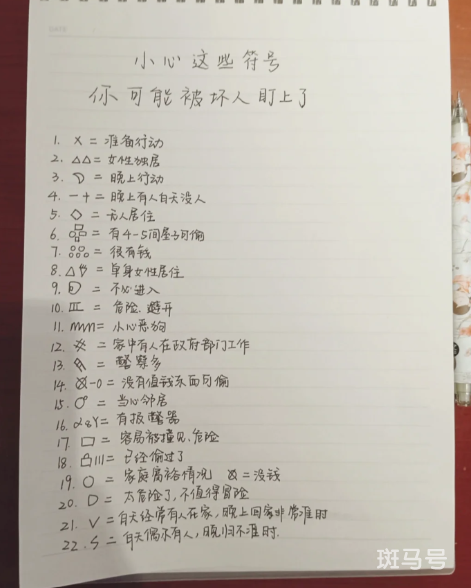 小心这些符号
你可能被坏人盯上了
1. × = 准备行动
2. △△ = 女性独居
3. = 晚上行动
4. 一 + = 晚上有人白天没人
5. ◇ = 无人居住
6. = 有4-5间屋子可偷
7. = 很有钱
8. △ = 单身女性居住
9. = 不必进入
10. = 危险.避开
11. mm = 小心恶狗
12. = 家中有人在政府部门工作
13. = 警察多
14. -0 = 没有值钱东西可偷
15. = 当心邻居
16. = 有报警器
17. □ = 容易被撞见.危险
18. = 已经偷过了
19. ○ = 家庭富裕情况 = 没钱
20. D = 太危险了,不值得冒险
21. V = 白天经常有人在家,晚上回家非常准时
22. S = 白天偶尔有人,晚归不准时.
斑马号